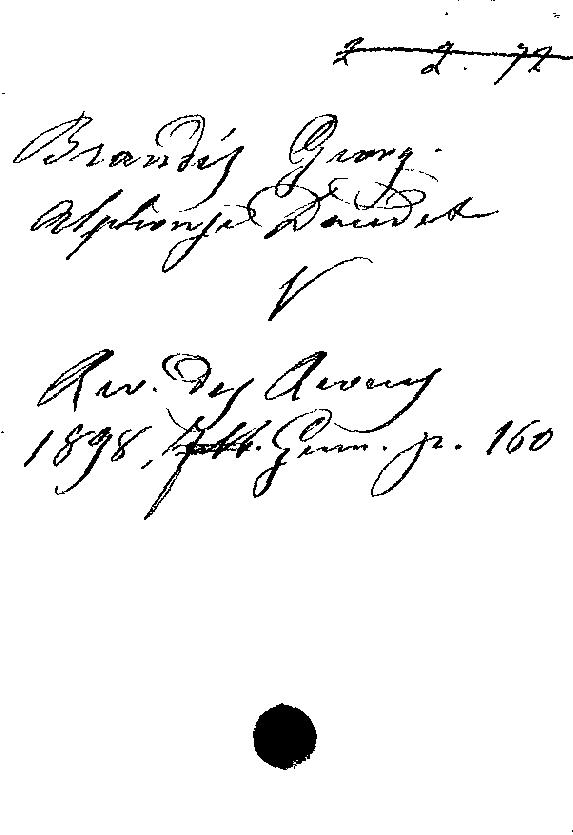 2 2. 72
Brandés Georg.
Alphonse Daudet
V
Rev. des Revues
1898, Febb. Genn. p. 160